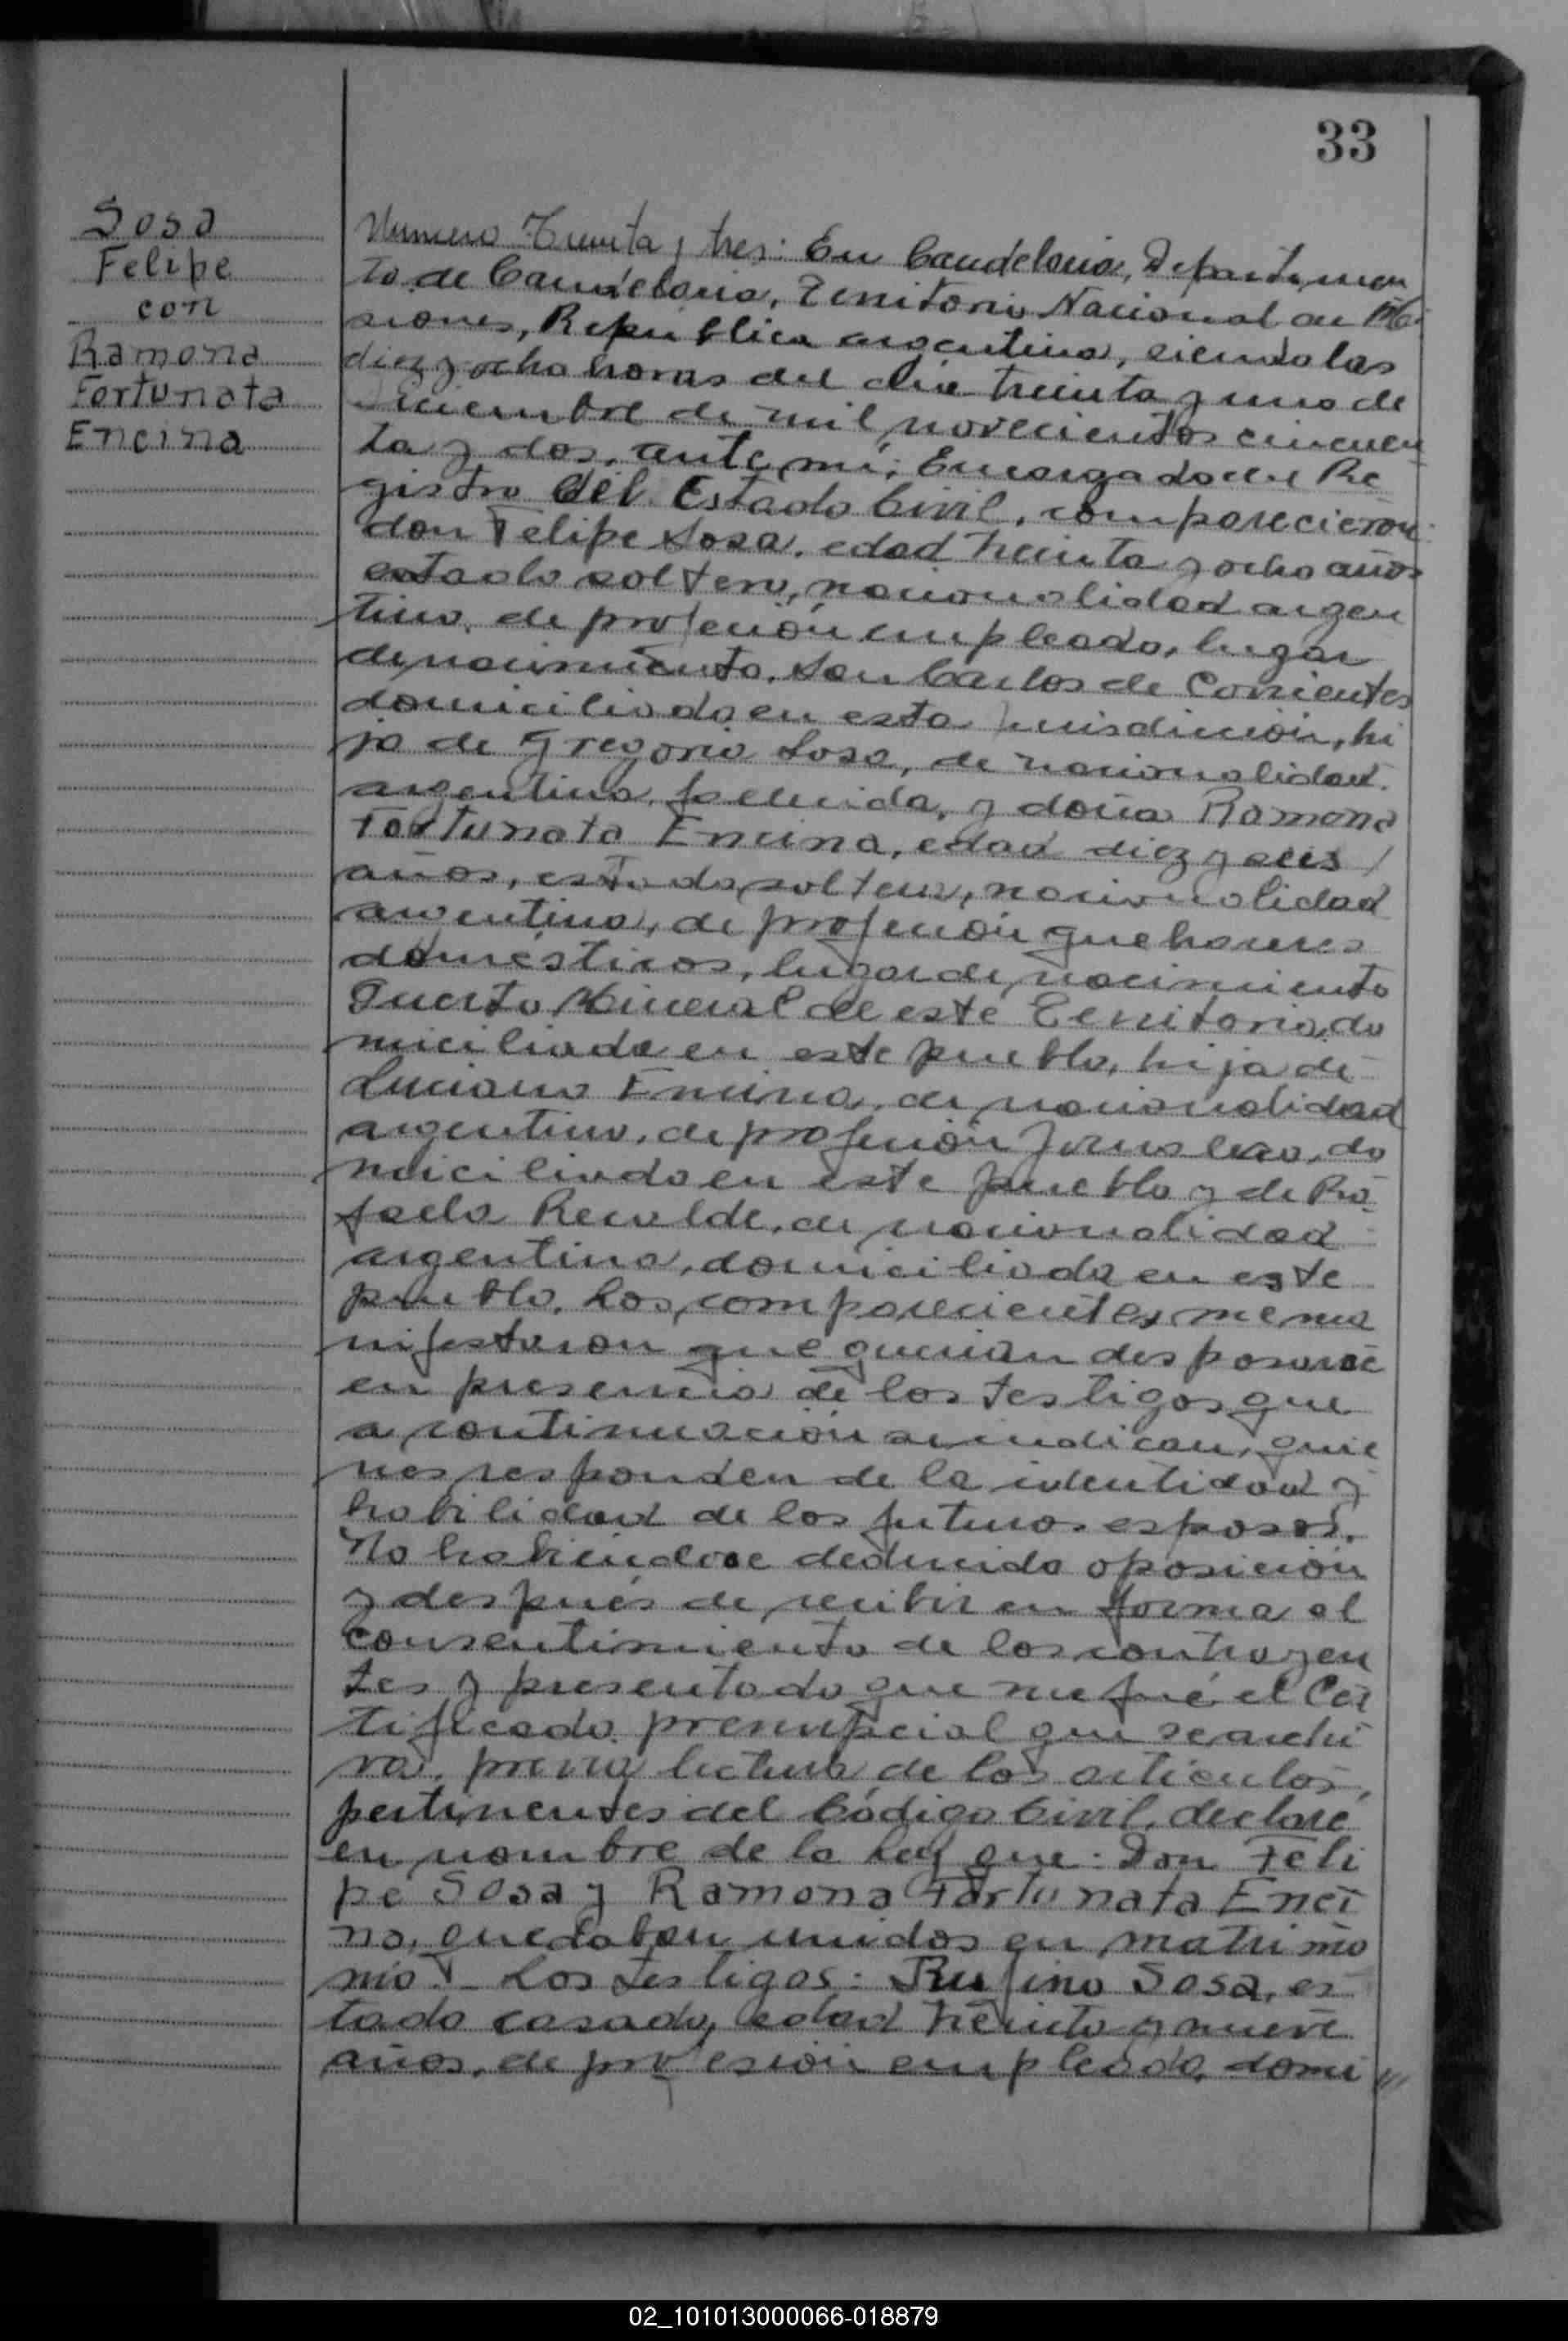 33
Sosa
Felipe
con
Ramona
Fortunata
Encina
Numero Treinta y tres: En Candelaria, Departamen
to de Candelaria, Territorio Nacional de Mi
siones, República argentina, siendo las
diez y ocho horas del dia treinta y uno de
Diciembre de mil novecientos cincuen
ta y dos, ante mí, Encargado del Re
gistro del Estado Civil, comparecieron:
don Felipe Sosa, edad treinta y ocho años
estado soltero, nacionalidad argen
tino, de profesión empleado, lugar
de nacimiento, San Carlos de Corrientes
domiciliado en esta jurisdicción, hi
jo de Gregoria Sosa, de nacionalidad
argentina, fallecida, y doña Ramona
Fortunata Encina, edad diez y seis /
años, estado soltera, nacionalidad
argentina, de profesión quehaceres
domésticos, lugar de nacimiento
Puerto Mineral de este Territorio, do
miciliada en este pueblo, hija de
Luciano Encina, de nacionalidad
argentino, de profesión jornalero, do
miciliado en este pueblo y de Ra
faela Recalde, de nacionalidad
argentina, domiciliada en este
pueblo. Los comparecientes me ma
nifestaron que querian desposarse
en presencia de los testigos que
a continuación se indican, quie
nes responden de la identidad y
habilidad de los futuros esposos.
No habiendose deducido oposición
y después de recibir en forma el
consentimiento de los contrayen
tes y presentado que me fué el Cer
tificado prenupcial que se archi
va, previa lectura de los articulos,
pertinentes del Código Civil, declaré
en nombre de la Ley que: Don Feli
pe Sosa y Ramona Fortunata Enci
na, quedaban unidos en matrimo
nio. - Los testigos: Rufino Sosa, es
tado casado, edad treinta y nueve
años, de profesión empleado, domi ///
02_101013000066-018879